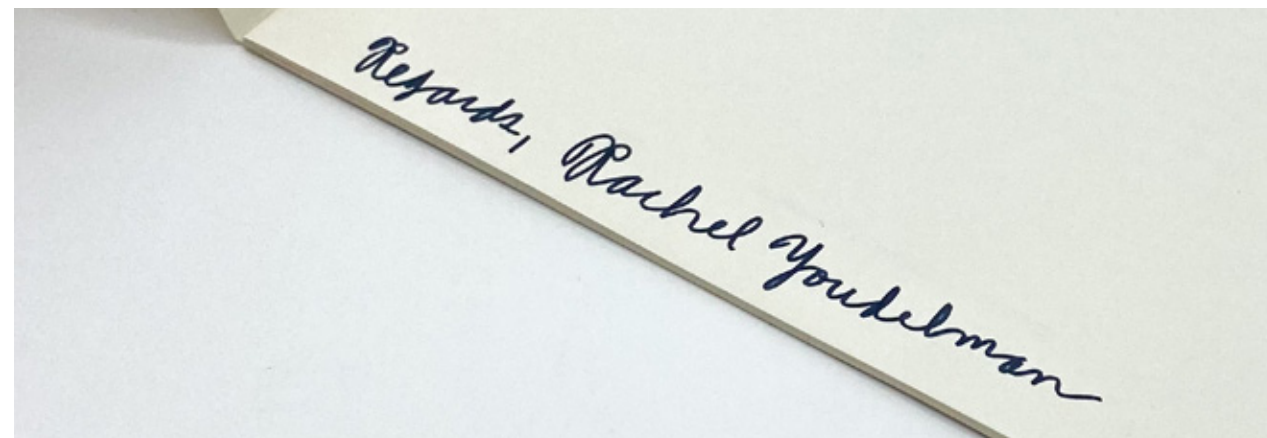 Regards, Rachel Youdelman